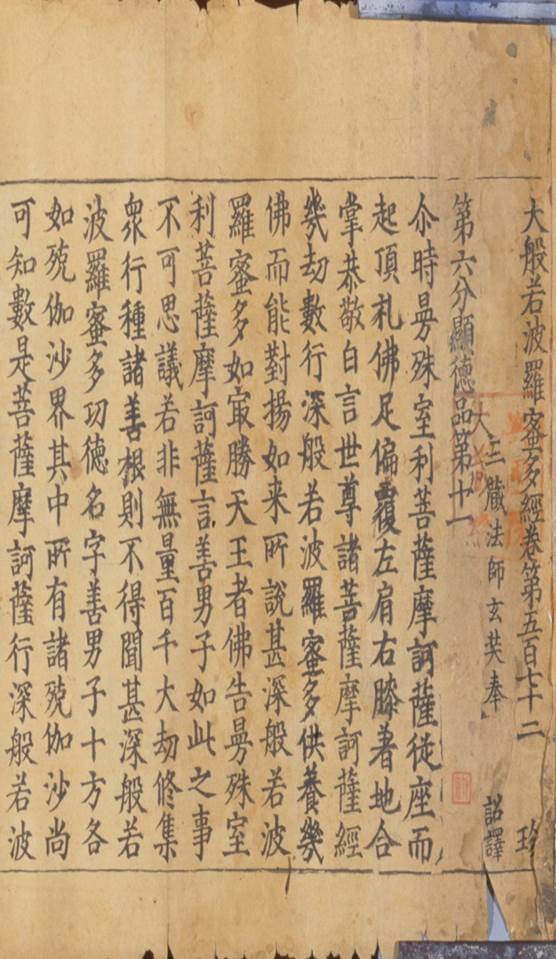 大般若波羅蜜多經卷第五百七十二 珍
大三藏法師玄奘奉 詔譯
第六分顯德品第十一
尒時曼殊室利菩薩摩訶薩從座而
起頂礼佛足偏覆左肩右膝著地合
掌恭敬白言世尊諸菩薩摩訶薩經
幾劫數行深般若波羅蜜多供養幾
佛而能對揚如来所說甚深般若波
羅蜜多如寂勝天王者佛告曼殊室
利菩薩摩訶薩言善男子如此之事
不可思議若非無量百千大劫修集
衆行種諸善根則不得聞甚深般若
波羅蜜多功德名字善男子十方各
如殑伽沙界其中所有諸殑伽沙尚
可知數是菩薩摩訶薩行深般若波